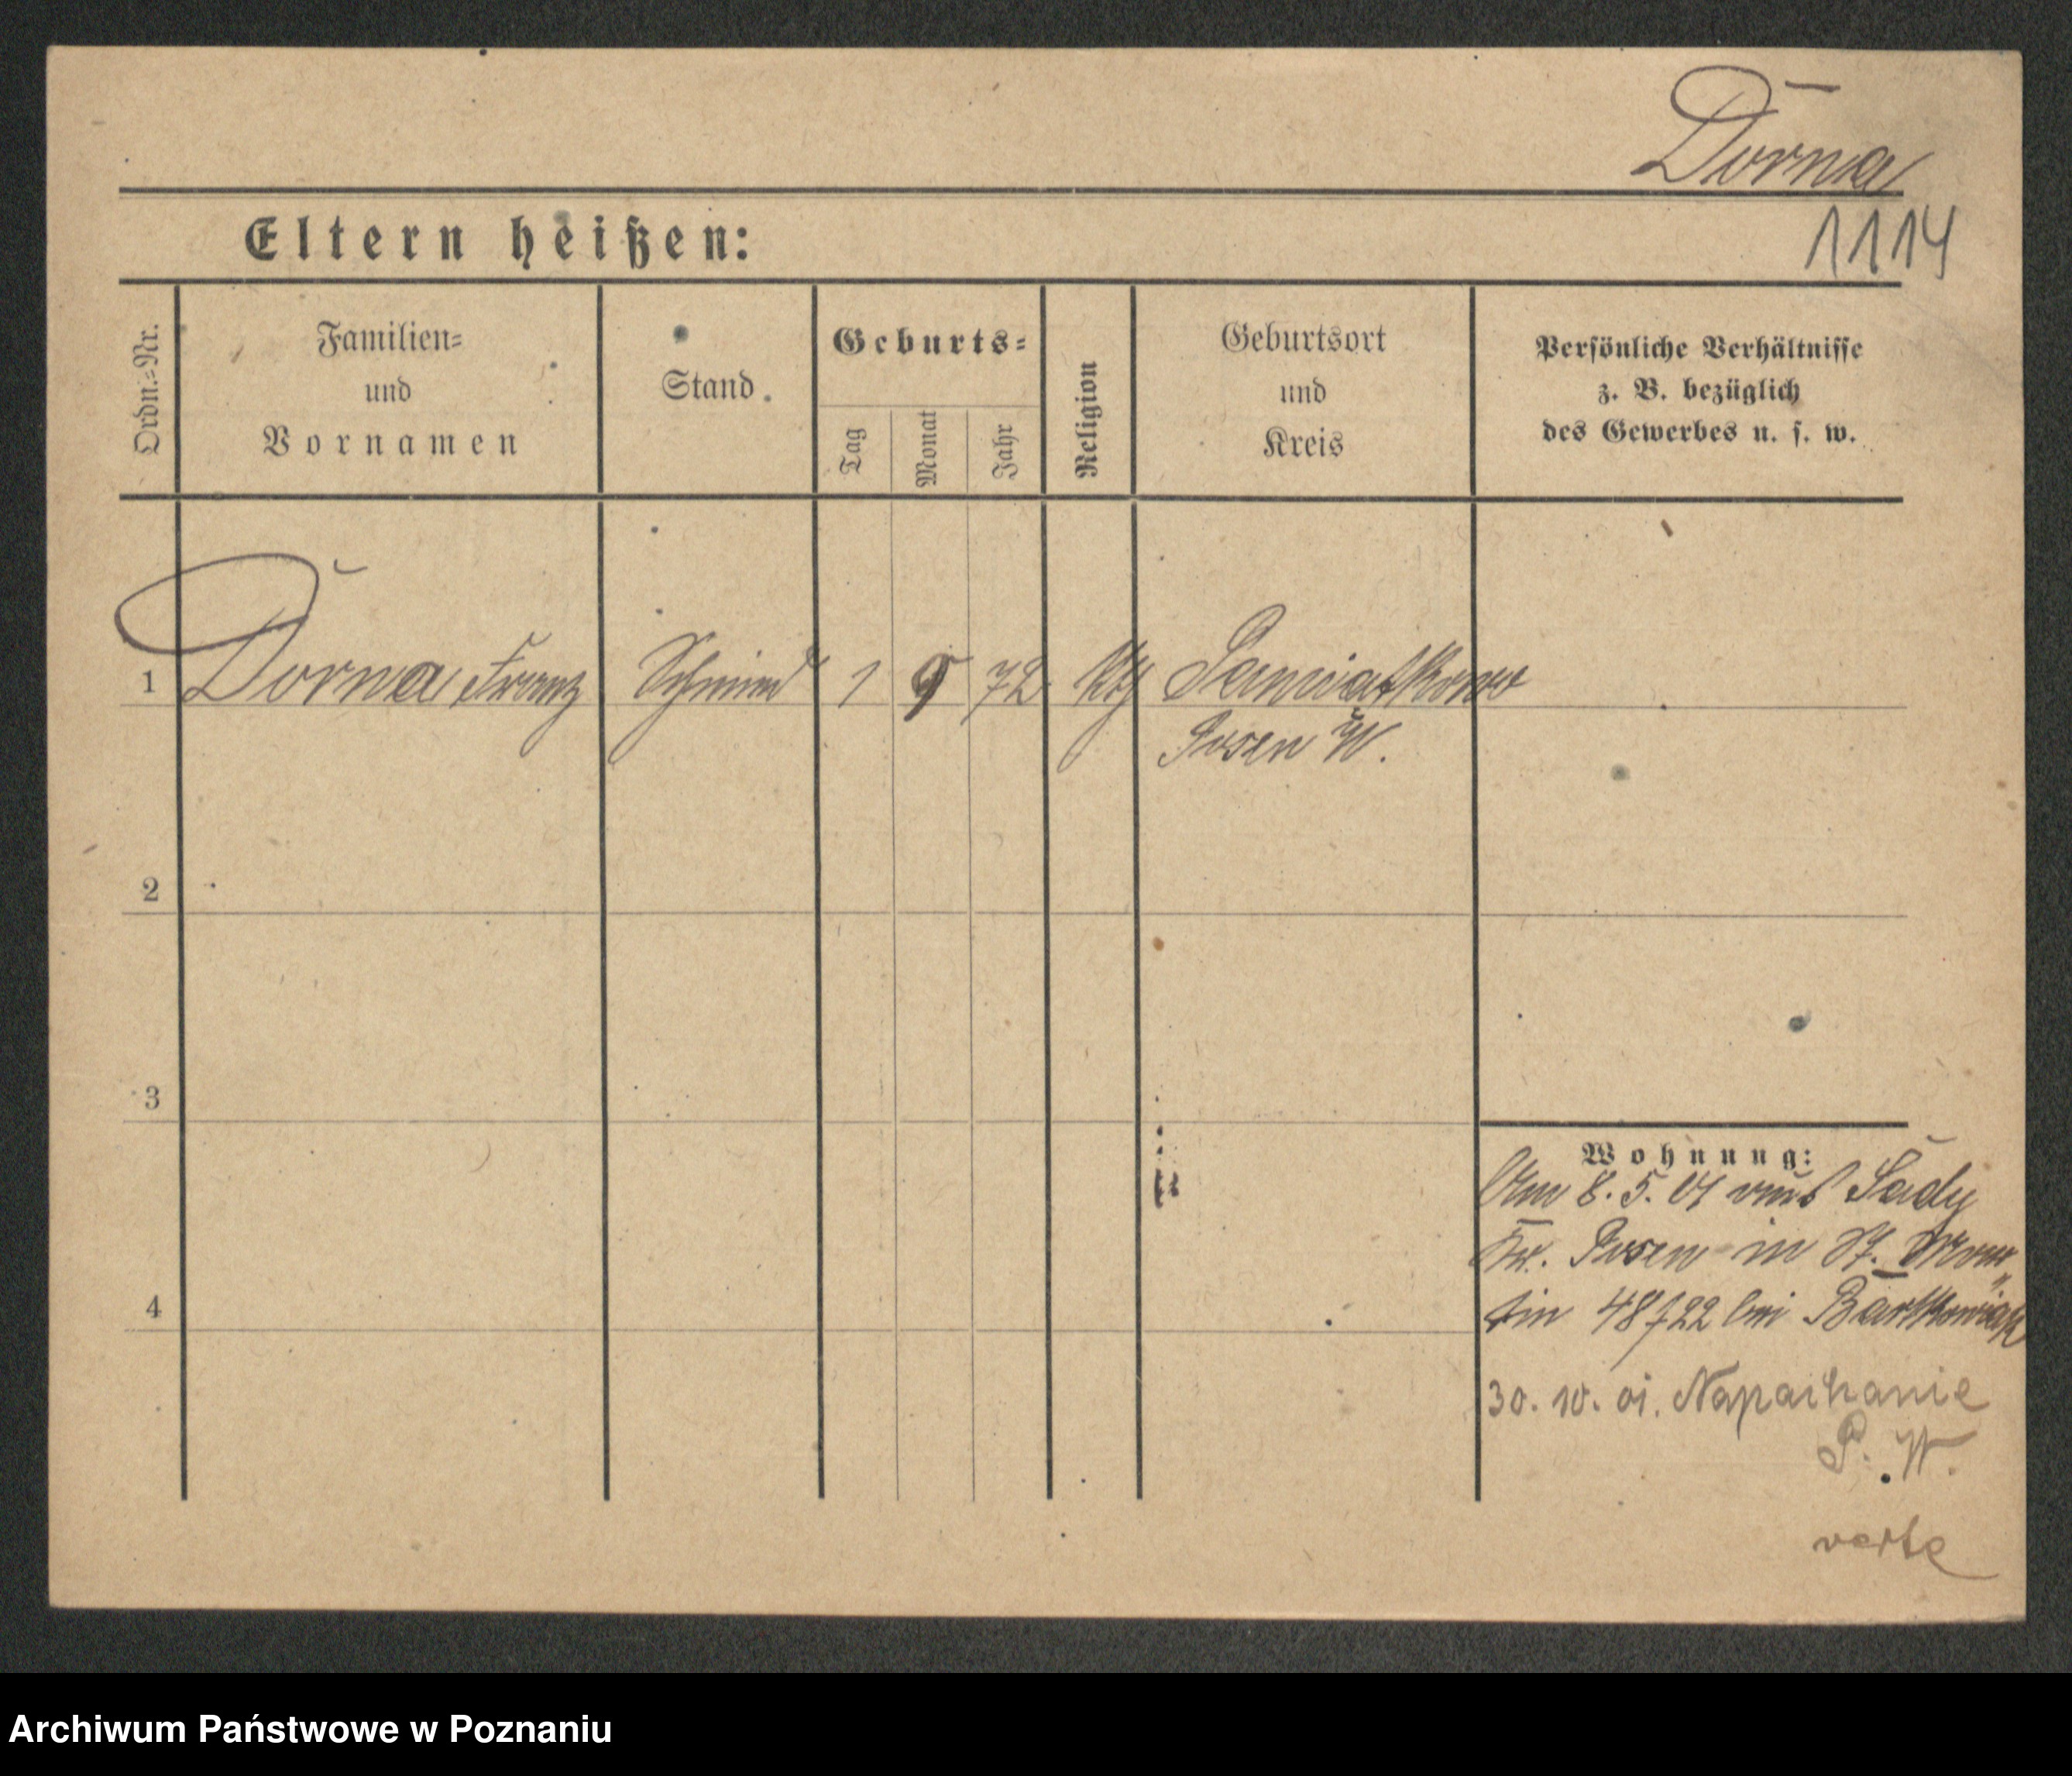 Dorna
Eltern heißen:
1114
Ordn.=Nr.
Familien=
und
Vornamen
Stand
Geburts=
Tag
Monat
Jahr
Religion
Geburtsort
und
Kreis
Persönliche Verhältnisse
z. B. bezüglich
des Gewerbes u. s. w.
1 Dorna Franz Schmied 1 9 72 kth
Posen W.
2
3
Wohnung:
Am 8.5.01 aus Sady
Kr. Posen in St. Mar
4
tin 48/22 bei Bartkowiak
30. 10. 01. Napachanie
P. W.
verte
Archiwum Państwowe w Poznaniu